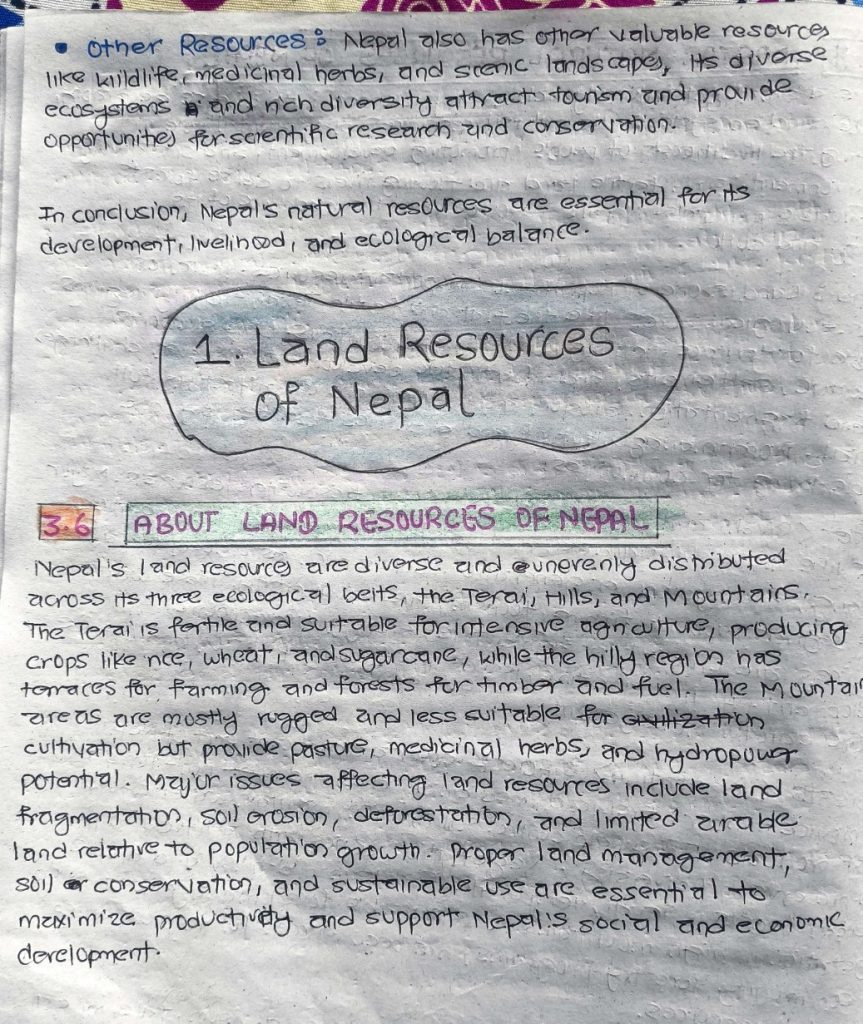 • Other Resources: Nepal also has other valuable resources
like wildlife, medicinal herbs, and scenic landscapes, Its diverse
ecosystems and rich diversity attract tourism and provide
opportunities for scientific research and conservation.
In conclusion, Nepal's natural resources are essential for its
development, livelihood, and ecological balance.
1. Land Resources
of Nepal
3.6 ABOUT LAND RESOURCES OF NEPAL
Nepal's land resources are diverse and unevenly distributed
across its three ecological belts, the Terai, Hills, and Mountains.
The Terai is fertile and suitable for intensive agriculture, producing
crops like rice, wheat, and sugarcane, while the hilly region has
terraces for farming and forests for timber and fuel. The Mountain
areas are mostly rugged and less suitable for civilization
cultivation but provide pasture, medicinal herbs, and hydropower
potential. Major issues affecting land resources include land
fragmentation, soil erosion, deforestation, and limited arable
land relative to population growth. Proper land management,
soil conservation, and sustainable use are essential to
maximize productivity and support Nepal's social and economic
development.